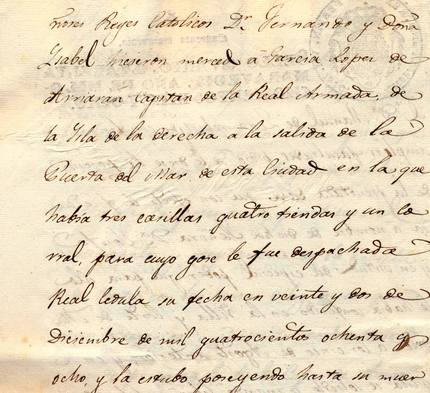 ñores Reyes Catolicos Dn. Fernando y Doña
Ysabel hicieron merced a Garcia Lopez de
Arriaran Capitan de la Real Armada, de
la Ysla de la derecha a la salida de la
Puerta del Mar de esta Ciudad en la que
habia tres casillas quatro tiendas y un co
rral, para cuyo gose le fue despachada
Real Cedula su fecha en veinte y dos de
Diciembre de mil quatrocientos ochenta y
ocho, y la estubo poseyendo hasta su muer